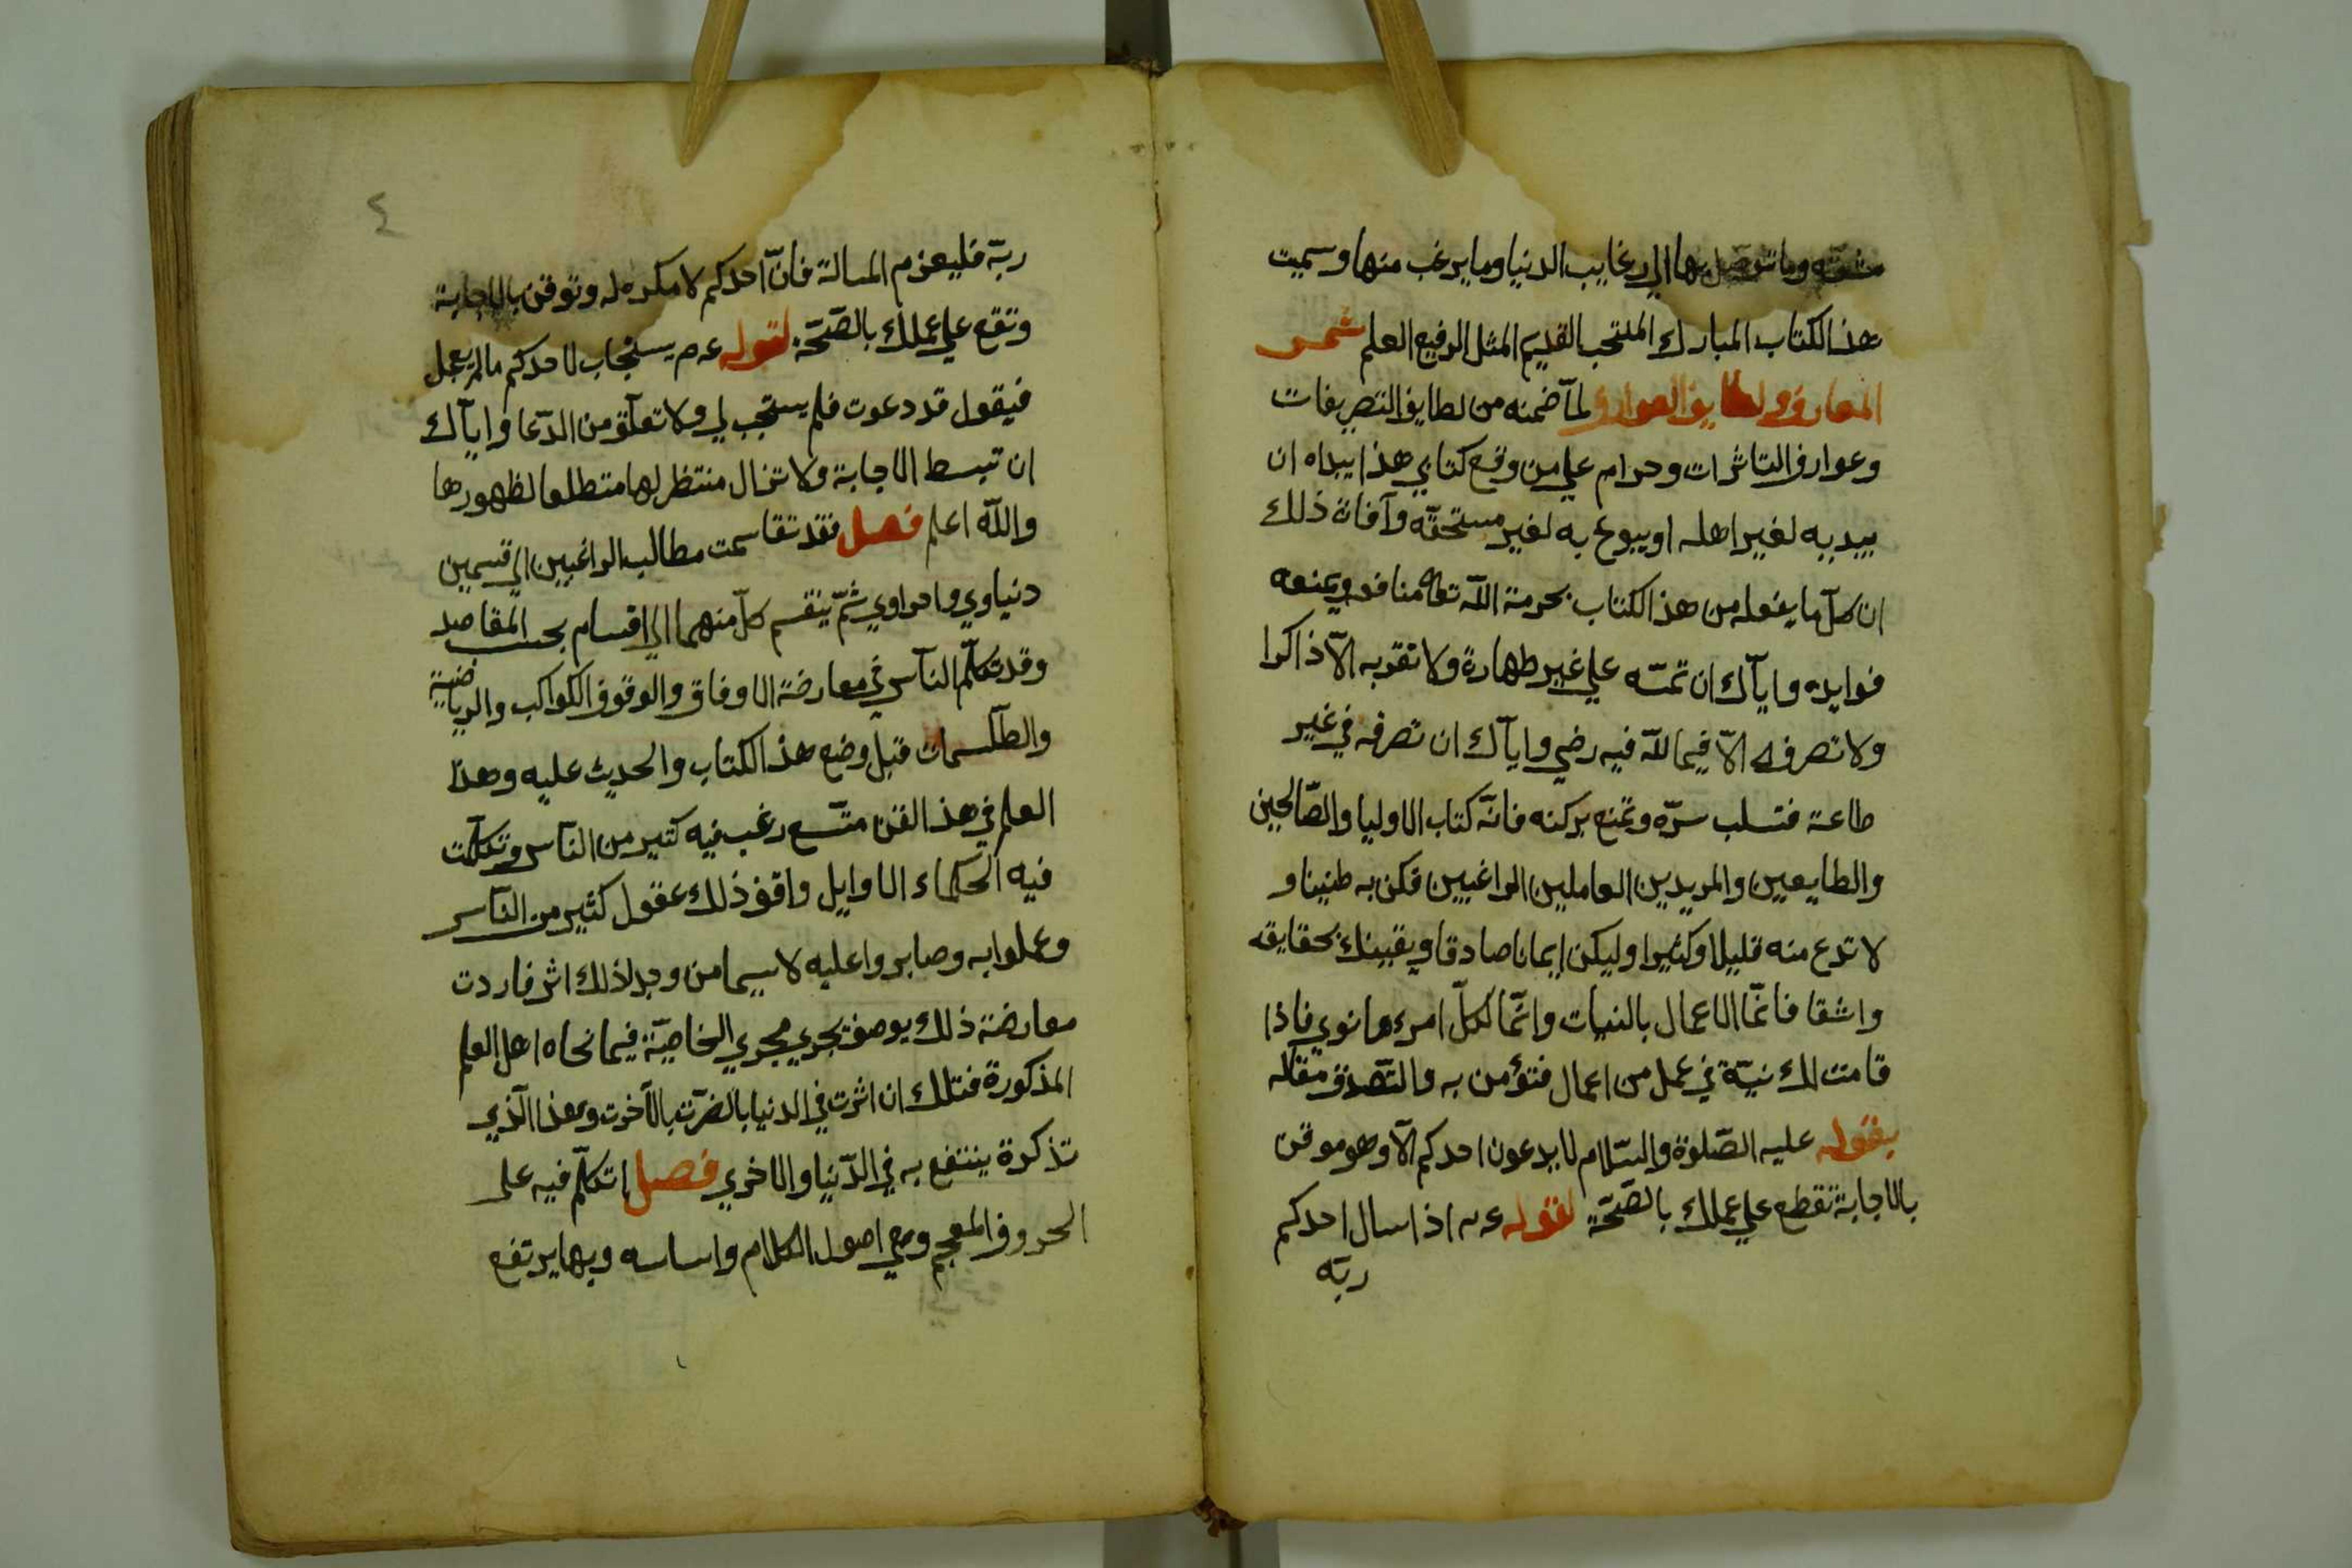 وما توصل بها الي رغايب الدنيا وما يرغب منها وسميت
هذا الكتاب المبارك المنتخب القديم المثل الرفيع العلم شمس
المعارف ولطايف العوارف لما ضمنه من لطايف التصريفات
وعوارف التاثرات وحرام علي من وقع كتابي هذا ايبداه ان
يبديه لغير اهله او يبوح به لغير مستحقه وآفاة ذلك
ان كل ما يفعله من هذا الكتاب بحرمة الله تعا منافد ويمنعه
فوايده واياك ان تمته علي غير طهارة ولا تقربه الا ذاكرا
ولا تصرفه الا فيما لله فيه رضي واياك ان تصرفه في غير
طاعة فتسلب سره وتمنع بركته فانه كتاب الاوليا والصالحين
والطايعين والمريدين العاملين الراغبين فكن به طنينا و
لا تدع منه قليلا وكثيرا وليكن ايمانا صادقا ويقينك بحقايقه
واشقا فانما الاعمال بالنيات وانما لكل امرء ما نوي فاذا
قامت لك نية في عمل من اعمال فتؤمن به والتصدق مقاله
بقوله عليه الصلوة والسلام لا يدعون احدكم الا وهو موقن
بالاجابة تقطع علي عملك بالصحة لقوله عم اذا سال احدكم
ربه
٤
ربه فليعزم المسالة فان احدكم لا مكره له وتوقن بالاجابة
وتقع علي عملك بالصحة لقوله عم يستجاب لاحدكم ما لم يعجل
فيقول قد دعوت فلم يستجب لي ولا تعلق من الدعا واياك
ان تبسط الاجابة ولا تزال منتظر لها متطلعا لظهورها
والله اعلم فصل فقد تقاسمت مطالب الراغبين الي قسمين
دنياوي واحراوي ثم ينقسم كل منهما الي اقسام بحسب المقاصد
وقد تكلم الناس في معارضة الاوفاق والوقوف الكواكب والرياضية
والطلسمات قبل وضع هذا الكتاب والحديث عليه وهذا
العلم في هذا الفن متسع رغب فيه كتير من الناس وتكلمت
فيه الحكماء الاوايل واقف ذلك عقول كثير من الناس
وعملوا به وصابروا عليه لا سيما من وجد لذلك اثر فاردت
معارضة ذلك بوصف تجري مجري الخاصية فيما نحاه اهل العلم
المذكورة فتلك ان اثرت في الدنيا بالضرت بالآخرت وهذا الذي
تذكرة ينتفع به في الدنيا والاخري فصل اتكلم فيه علي
الحروف المعجم وهي اصول الكلام واساسه وبها يرتفع